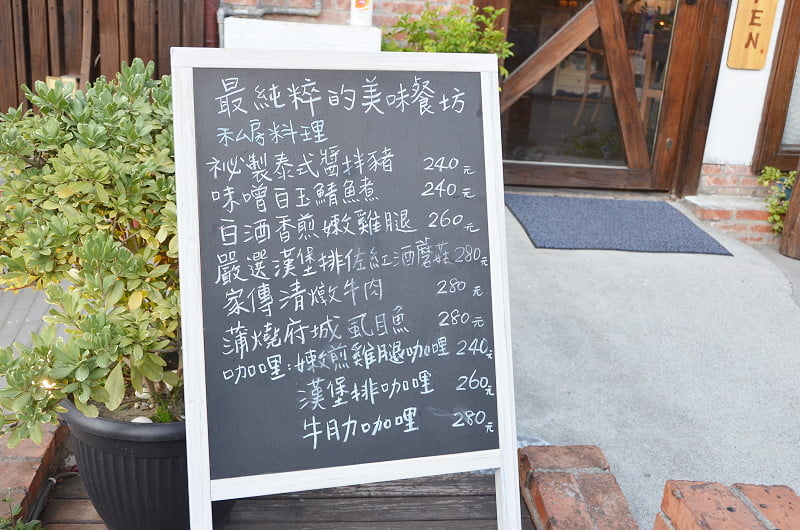 最純粹的美味餐坊
私房料理
祕製泰式醬拌豬 240元
味噌白玉鯖魚煮 240元
白酒香煎嫩雞腿 260元
嚴選漢堡排佐紅酒蘑菇 280元
家傳清燉牛肉 280元
蒲燒府城虱目魚 280元
咖哩:嫩煎雞腿咖哩 240元
漢堡排咖哩 260元
牛肋咖哩 280元
EN.